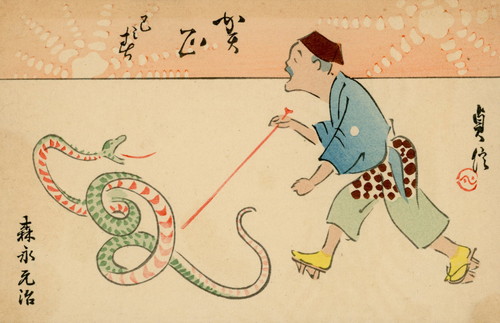 賀正
巳之春
貞信
森永元治